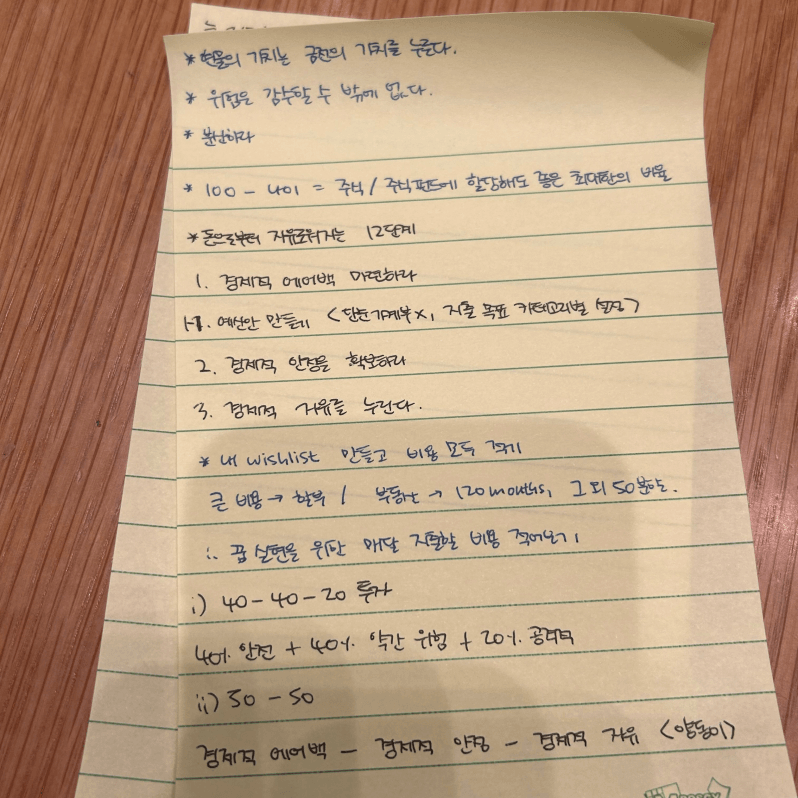 * 현물의 가치는 금전의 가치를 누른다.
* 위험은 감수할 수 밖에 없다.
* 분산하라
* 100 - 401 = 주식 / 주식펀드에 할당해도 좋은 최대한의 비율
* 돈으로부터 자유로워지는 12단계
1. 경제적 에어백 마련하라
1-1. 예산안 만들기 <단순가계부x, 지출 목표 카테고리별 설정>
2. 경제적 안정을 확보하라
3. 경제적 자유를 누린다.
* 내 wishlist 만들고 비용 모두 적기
큰 비용 → 할부 / 부동산 → 120 months, 그 외 50
∴ 꿈 실현을 위한 매달 지출할 비용 적어보기
i) 40-40-20 투자
40% 안전 + 40% 약간 위험 + 20% 공격적
ii) 50 - 50
경제적 에어백 - 경제적 안정 - 경제적 자유 <양동이>